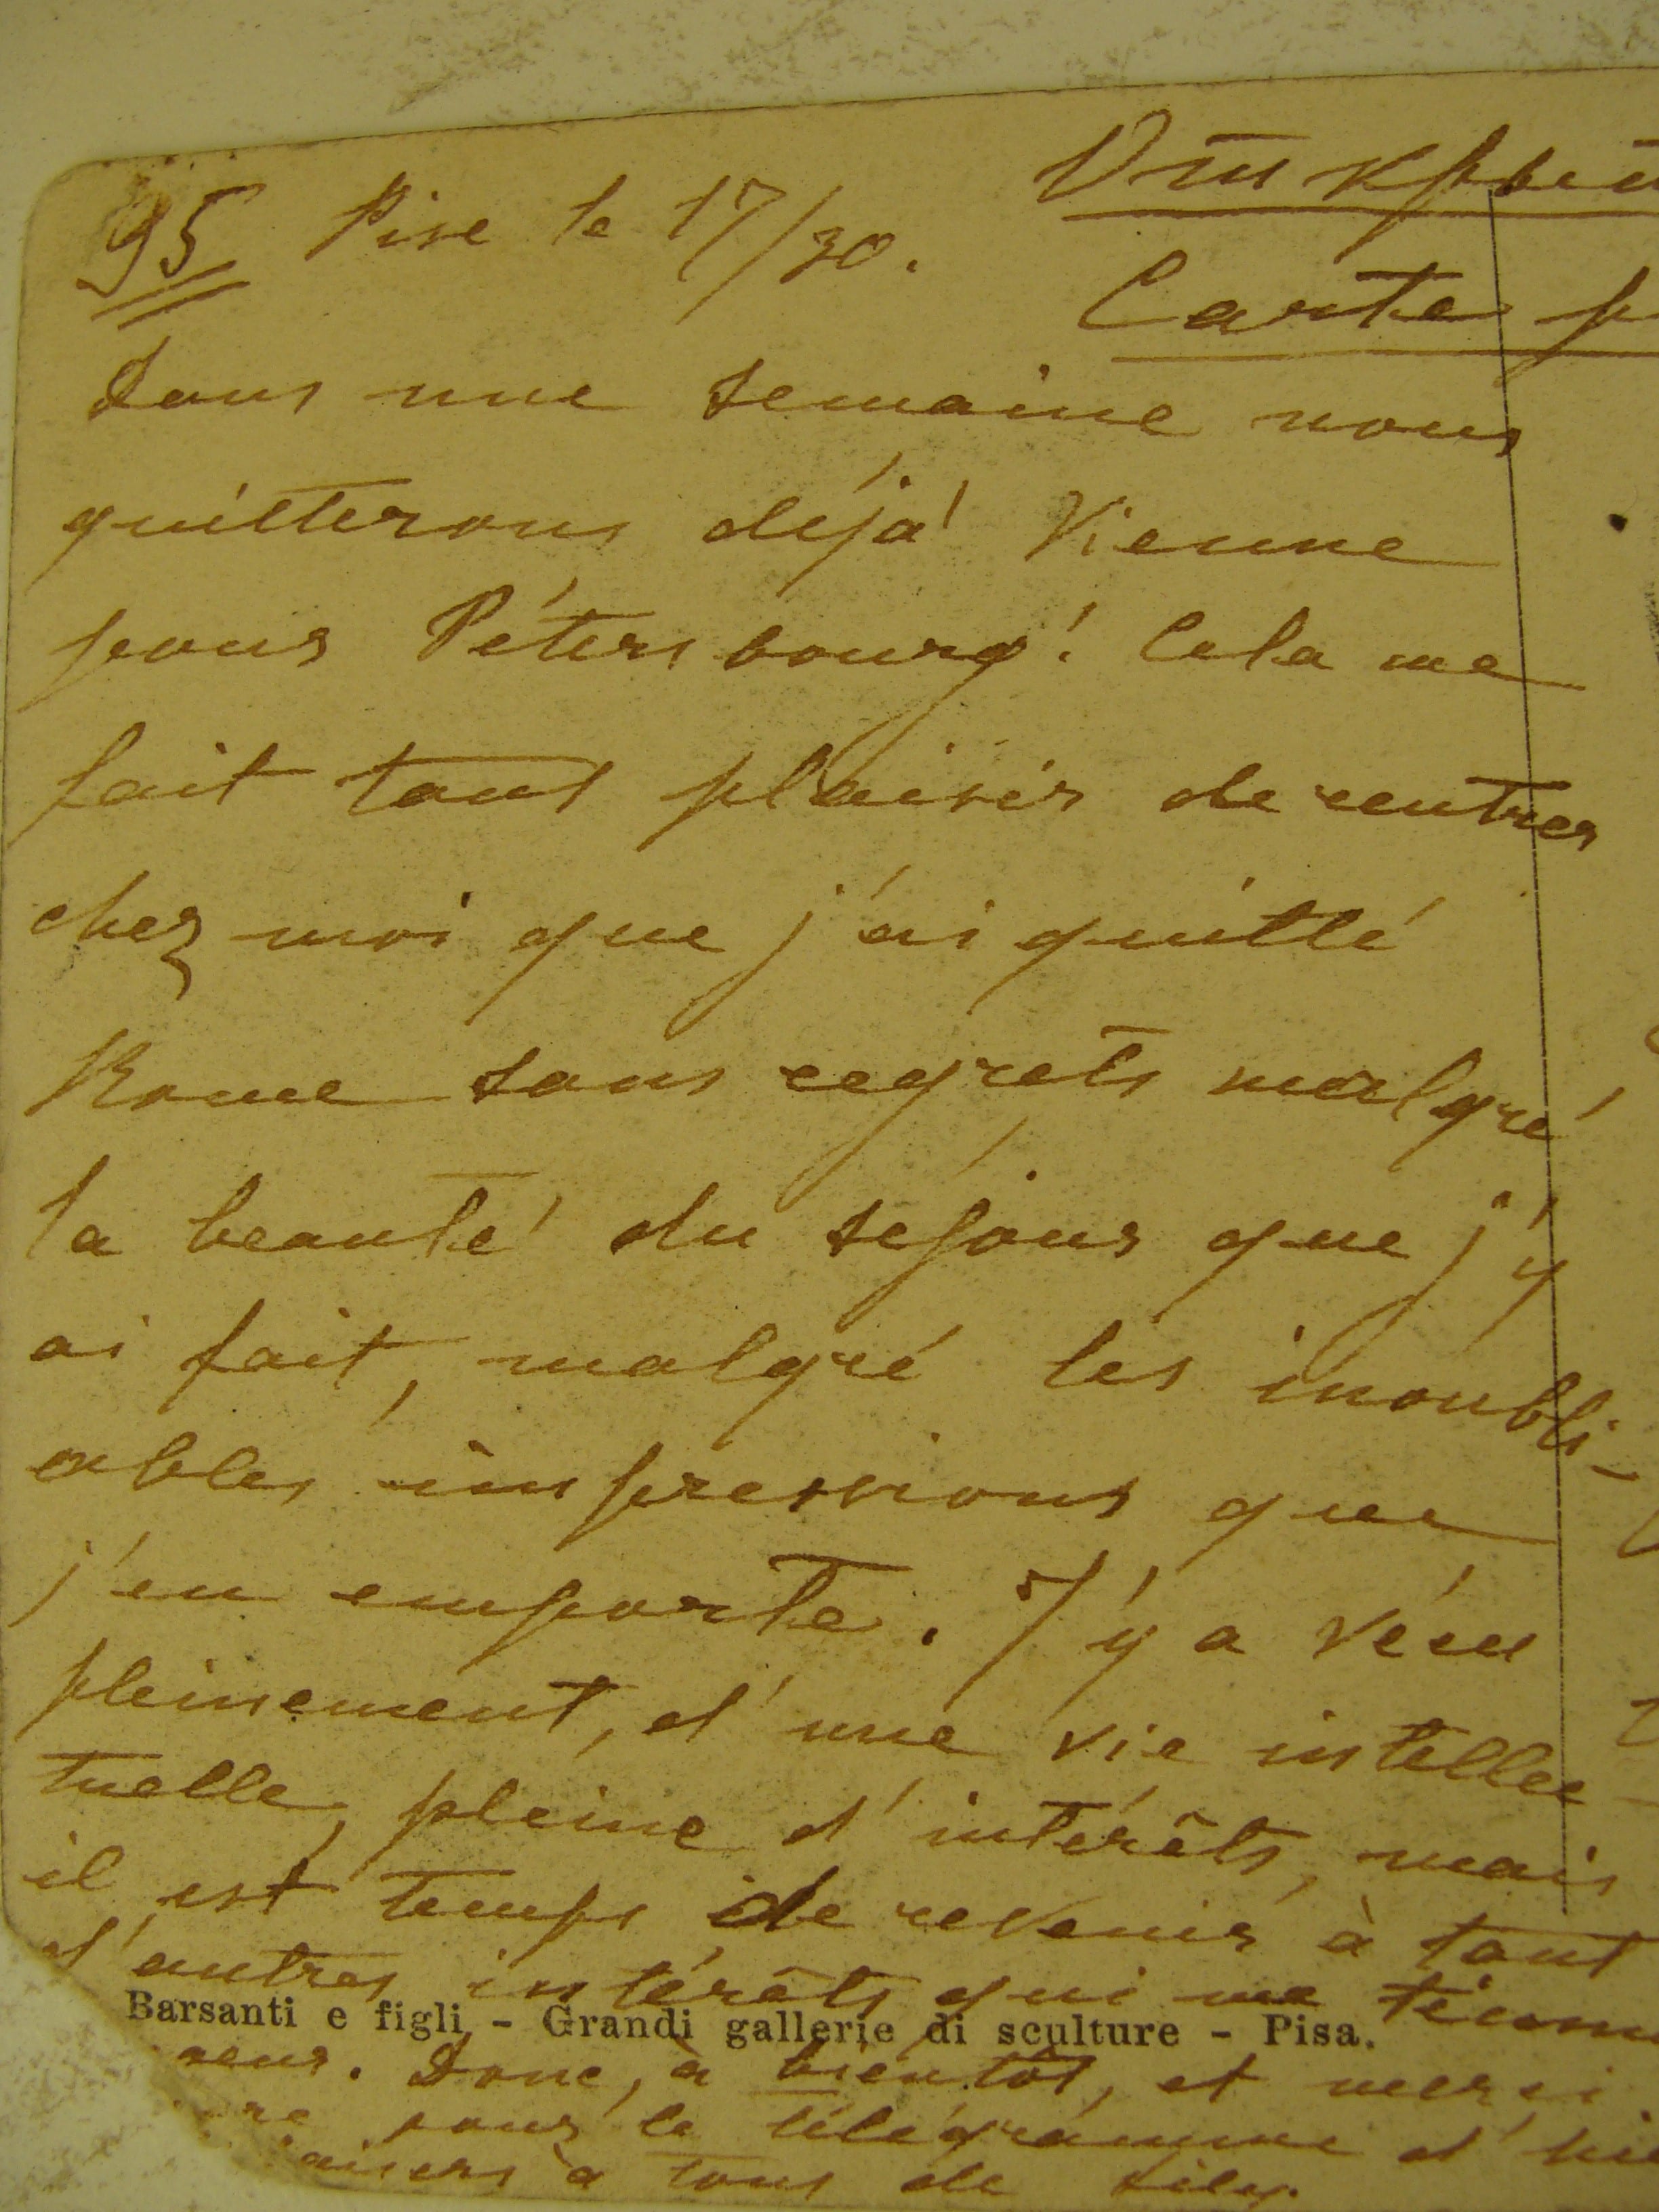 95 Pise le 17/30. Открыт
Carte p
Dans une semaine nous
quitterons déjà Vienne
pour Pétersbourg! Cela me
fait tant plaisir de rentrer
chez moi que j'ai quitté
Rome sans regrets malgré
la beauté du séjour que j'y
ai fait, malgré les inoubli-
ables impressions que
j'en emporte. J'y a vécu
pleinement, d'une vie intellec-
tuelle, pleine d'intérêts, mais
il est temps de revenir à tant
d'autres intérêts qui me tienn
Barsanti e figli - Grandi gallerie di sculture - Pisa.
oeur. Donc, à bientôt, et merci
re pour le télégramme d'hie
aisers à tous de